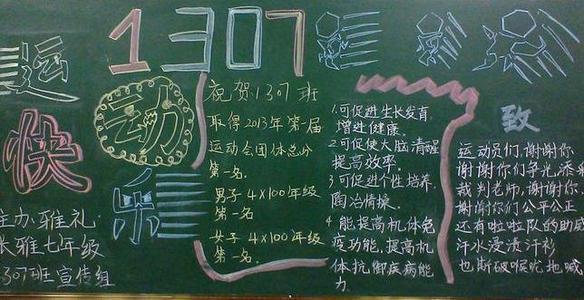 1307
运动
快乐
主办:雅礼
长雅七年级
1307班宣传组
祝贺1307班
取得2013年第一届
运动会团体总分
第一名.
男子4×100年级
第一名
女子4×100年级
第一名.
1.可促进生长发育,
增进健康.
2.可促使大脑清醒
提高效率
3.可促进个性培养,
陶冶情操.
4.能提高机体免
疫功能,提高机
体抗御疾病能
力
致
运动员们,谢谢你
谢谢你们争光,添彩
裁判老师,谢谢你
谢谢你们公平公正
还有啦啦队的助威
汗水浸渍汗衫
也嘶破喉咙地喊